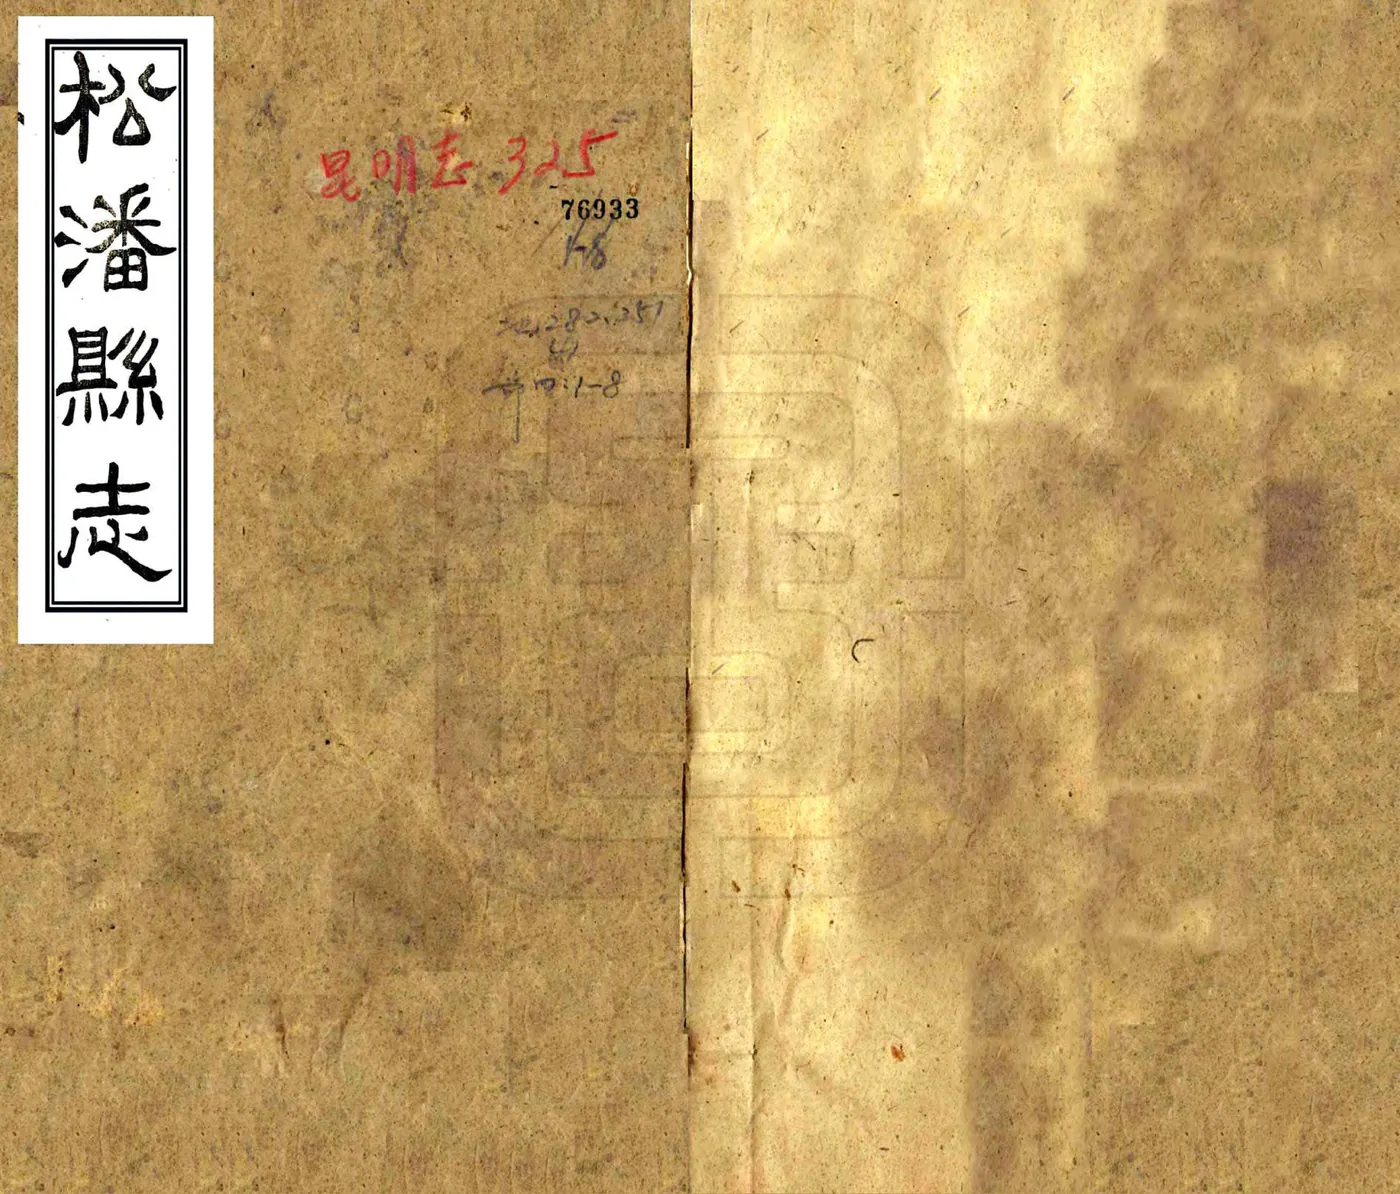 松潘縣志
昆明志 325
76933
1-8
282.251
部四:1-8